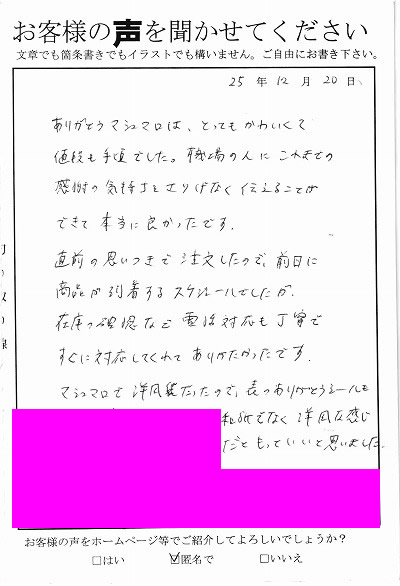 お客様の声を聞かせてください
文章でも箇条書きでもイラストでも構いません。ご自由にお書き下さい。
25 年 12 月 20 日、
ありがとうマシュマロは、とってもかわいくて
値段も手頃でした。職場の人に これまでの
感謝の気持ちをさりげなく伝えることが
できて 本当に良かったです.
直前の思いつきで 注文したので、前日に
商品が到着する スケジュールでしたが.
在庫の確認など 電話対応も丁寧で
すぐに対応してくれて ありがたかったです.
マシュマロで 洋風 だったので、表のありがとうシールも
和風でなく 洋風な感じ
だともっといいと思いました.
お客様の声をホームページ等でご紹介してよろしいでしょうか？
□はい ☑匿名で □いいえ